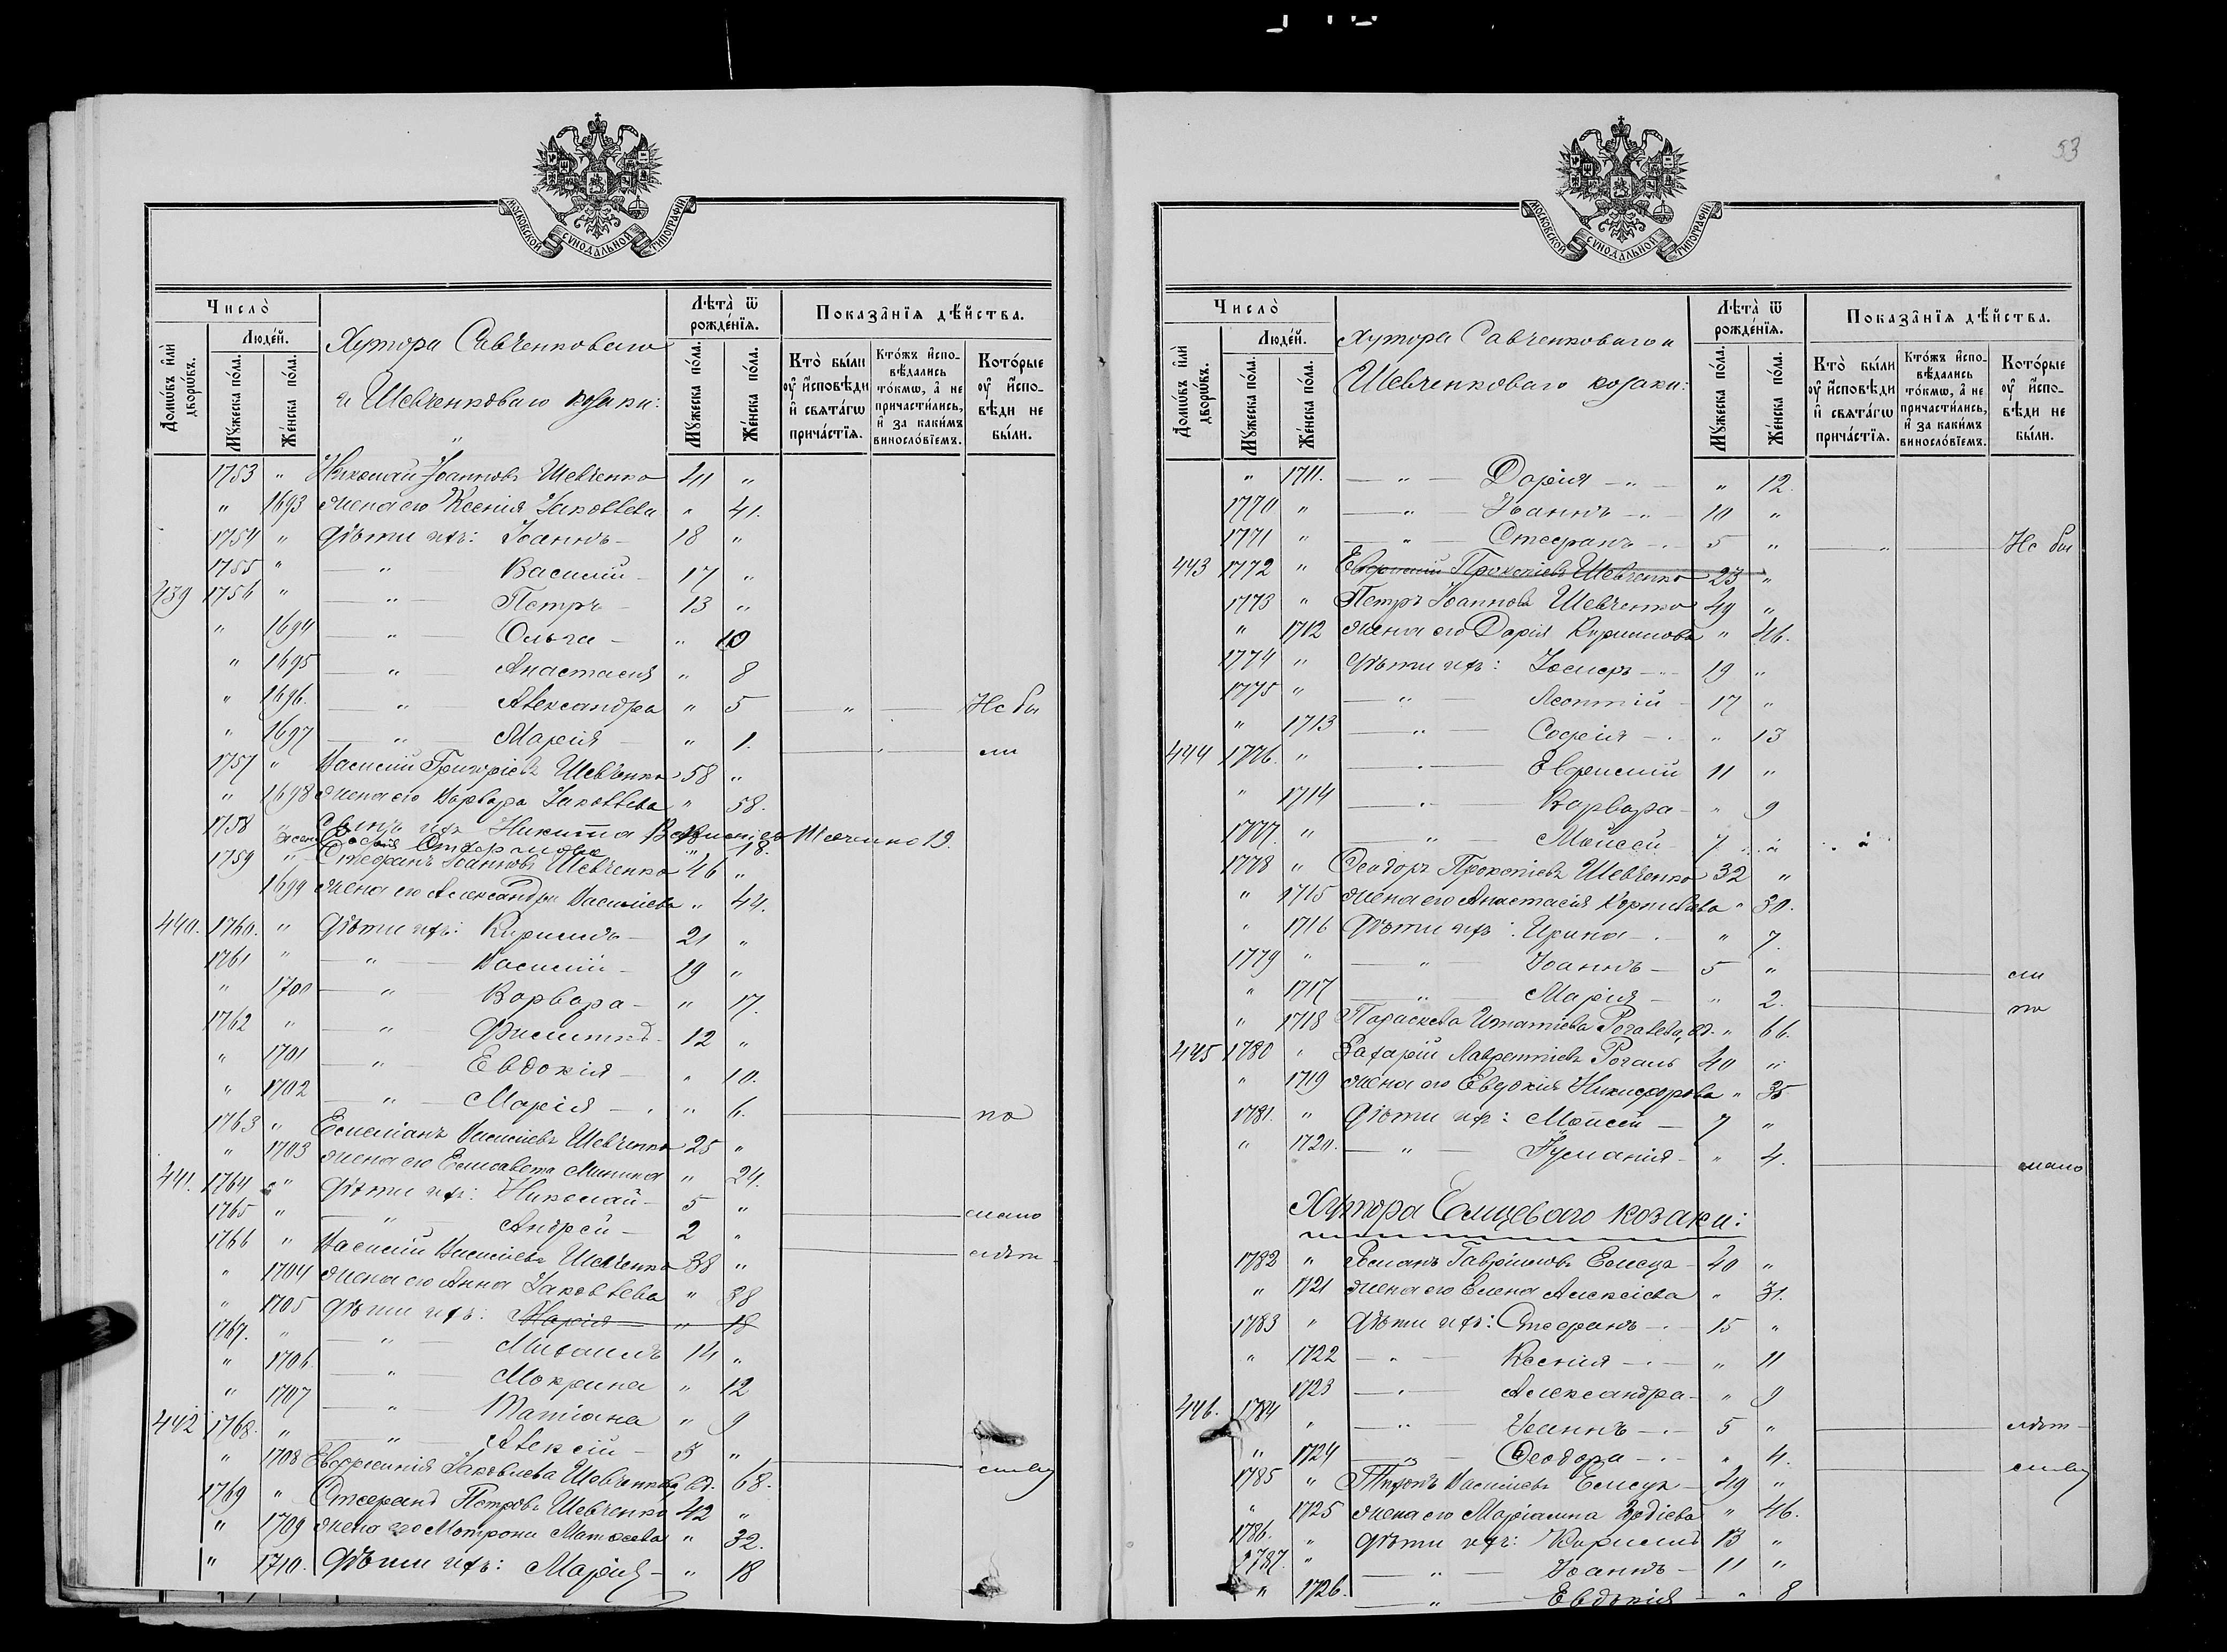 МОСКОВСКОЙ СУНОДАЛЬНОЙ ТИПОГРАФІИ
Число̀
Домѡ́въ и҆лѝ дворѡ́въ.
Люде́й.
Мꙋ́жеска по́ла.
Же́нска по́ла.
Хутора Савченковаго
и Шевченковаго козаки:
Лѣта̀ ѿ рожде́нїя.
Мꙋ́жеска по́ла.
Же́нска по́ла.
Показа̑нїѧ дѣ́йства.
Кто̀ бы́ли ᲂу҆ и҆сповѣди и҆ свѧта́гѡ прича́стїѧ.
Кто́жъ и҆спо-вѣ́дались то́кмѡ, а҆ не причасти́лись, и҆ за каки́мъ винослѡ́вїемъ.
Кото́рые ᲂу҆ и҆спо-вѣди не бы́ли.
1753 " Николай Іоанновъ Шевченко 41 "
" 1693 жена его Ксенія Іаковлева " 41.
1754 " дѣти ихъ: Іоаннъ — 18 "
1755 " — " — Василій — 17 "
439 1756 " — " — Петръ — 13 "
" 1694 — " — Ольга — " 10
" 1695 — " — Анастасія " 8
" 1696. — " — Александра " 5 — " — Не бы
" 1697 — " — Марія — " 1. — ли
1757 " Василій Григоріевъ Шевченко 58 "
" 1698 жена его Варвара Іаковлева " 58.
1758 " Сынъ ихъ Никита Василіевъ Шевченко 19.
жена Стефанова " 18.
1759 " Стефанъ Іоанновъ Шевченко 46 "
1699 жена его Александра Василіева " 44.
440. 1760. " дѣти ихъ: Кириллъ — 21 "
1761 " — " — Василій — 19 "
" 1700 — " — Варвара — " 17.
1762 " — " — Филиппъ — 12 "
" 1701 — " — Евдокія — " 10.
" 1702 — " — Марія — " 6. — по
1763 " Емеліанъ Василіевъ Шевченко 25 "
" 1703 жена его Елисавета Минина " 24.
441. 1764 " дѣти ихъ: Николай — 5 "
1765 " — " — Андрей — 2 " — мало
1766 " Василій Василіевъ Шевченко 38 " — лѣт
" 1704 жена его Анна Іаковлева " 38
" 1705 дѣти ихъ: Марія — " 18
1767. " — " — Михаилъ 14 "
" 1706 — " — Мокрина " 12
" 1707 — " — Татіана " 9
442 1768. " — " — Алексій — 3 "
" 1708 Евфимія Іаковлева Шевченкова, вд. 68. — ству
1769 " Стефанъ Петровъ Шевченко 42 "
" 1709 жена его Матрона Матѳеева " 32.
" 1710. дѣти ихъ: Марія — " 18
53
МОСКОВСКОЙ СУНОДАЛЬНОЙ ТИПОГРАФІИ
Число̀
Домѡ́въ и҆лѝ дворѡ́въ.
Люде́й.
Мꙋ́жеска по́ла.
Же́нска по́ла.
Хутора Савченковаго и
Шевченковаго козаки:
Лѣта̀ ѿ рожде́нїя.
Мꙋ́жеска по́ла.
Же́нска по́ла.
Показа̑нїѧ дѣ́йства.
Кто̀ бы́ли ᲂу҆ и҆сповѣди и҆ свѧта́гѡ прича́стїѧ.
Кто́жъ и҆спо-вѣ́дались то́кмѡ, а҆ не причасти́лись, и҆ за каки́мъ винослѡ́вїемъ.
Кото́рые ᲂу҆ и҆спо-вѣди не бы́ли.
" 1711. — " — Дарія — " — " 12.
1770 " — " — Іоаннъ — " — 10 "
1771 " — " — Стефанъ — 5 " — " — Не бы
443 1772 " Евфимій Прокопіевъ Шевченко 23 "
1773 " Петръ Іоанновъ Шевченко 49 "
" 1712 жена его Дарія Кириллова " 46.
1774 " дѣти ихъ: Іосифъ — 19 "
1775 " — " — Леонтій — 17 "
" 1713 — " — Софія — " 13
444 1776. " — " — Евфимій 11 "
" 1714 — " — Варвара — " 9
1777. " — " — Моѵсей — 7 "
1778 " Ѳеодоръ Прокопіевъ Шевченко 32 "
" 1715 жена его Анастасія Корниліева " 30.
" 1716 дѣти ихъ: Ирина — " 7.
1779 " — " — Іоаннъ — 5 " — ли
" 1717 — " — Марія — " 2. — по
" 1718 Параскева Игнатіева Рогалева, вд. " 66.
445 1780 " Захарій Лаврентіевъ Рогаль 40 "
" 1719 жена его Евдокія Никифорова " 35
1781. " дѣти ихъ: Моѵсей — 7 "
" 1720. — " — " 4. — мало
Хутора Елицеваго козаки:
1782 " Романъ Гавріиловъ Емецъ — 40 "
" 1721 жена его Елена Алексіева " 31.
1783 " дѣти ихъ: Стефанъ — 15 "
" 1722 — " — Ксенія — " 11
1723 — " — Александра — " 9
446. 1784 " — " — Іоаннъ — 5 " — лѣт
" 1724 — " — Ѳеодора — " 4. — ству
1785 " Василіевъ Емецъ — 49 "
" 1725 жена его Маріамна " 46.
1786. " дѣти ихъ: Кириллъ 13 "
1787. " — " — Іоаннъ — 11 "
" 1726. — " — Евдокія — " 8